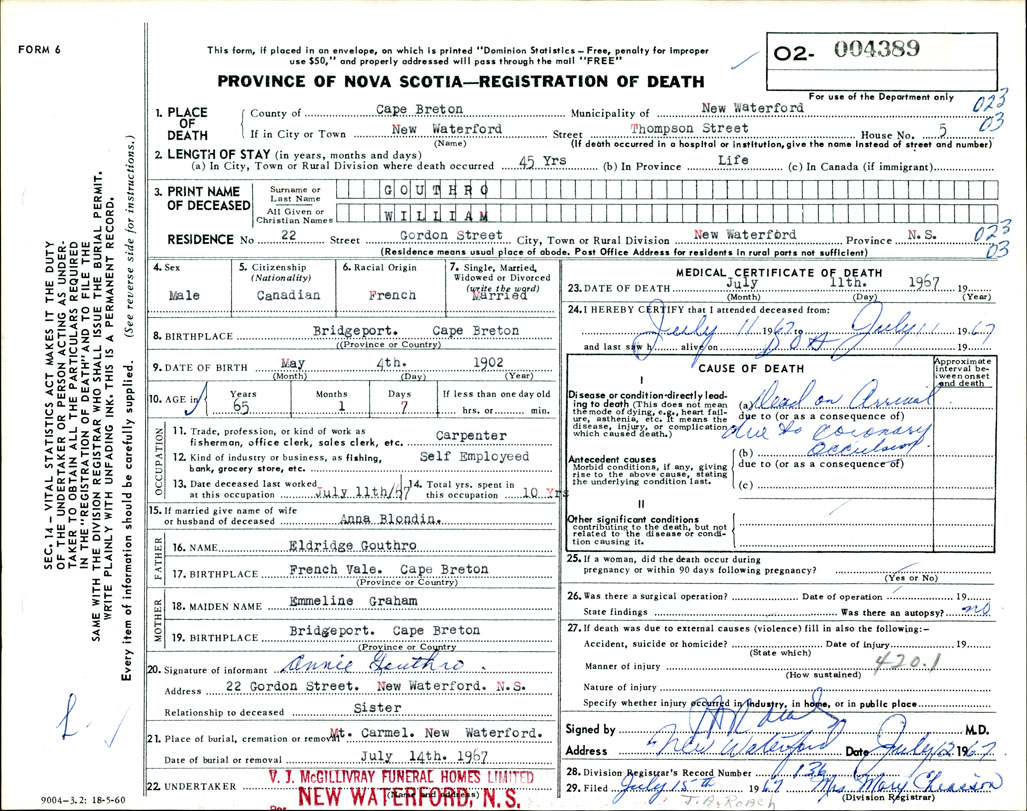 FORM 6
This form, if placed in an envelope, on which is printed "Dominion Statistics – Free, penalty for improper
use $50," and properly addressed will pass through the mail "FREE"
PROVINCE OF NOVA SCOTIA—REGISTRATION OF DEATH
O2- 004389
For use of the Department only
023
03
1. PLACE OF DEATH
County of Cape Breton Municipality of New Waterford
If in City or Town New Waterford Street Thompson Street House No. 5
(Name) (If death occurred in a hospital or institution, give the name instead of street and number)
2. LENGTH OF STAY (in years, months and days)
(a) In City, Town or Rural Division where death occurred 45 Yrs (b) In Province Life (c) In Canada (if immigrant)
3. PRINT NAME OF DECEASED
Surname or Last Name GOUTHRO
All Given or Christian Names WILLIAM
RESIDENCE No 22 Street Gordon Street City, Town or Rural Division New Waterford Province N.S.
023
03
(Residence means usual place of abode. Post Office Address for residents in rural parts not sufficient)
4. Sex
Male
5. Citizenship
(Nationality)
Canadian
6. Racial Origin
French
7. Single, Married,
Widowed or Divorced
(write the word)
Married
8. BIRTHPLACE Bridgeport. Cape Breton
((Province or Country)
9. DATE OF BIRTH May 4th. 1902
(Month) (Day) (Year)
10. AGE in
Years Months Days If less than one day old
65 1 7 hrs. or min.
OCCUPATION
11. Trade, profession, or kind of work as
fisherman, office clerk, sales clerk, etc. Carpenter
12. Kind of industry or business, as fishing,
bank, grocery store, etc. Self Employeed
13. Date deceased last worked
at this occupation July 11th/67
14. Total yrs. spent in
this occupation 10 Yrs
15. If married give name of wife
or husband of deceased Anna Blondin.
FATHER
16. NAME Eldridge Gouthro
17. BIRTHPLACE French Vale. Cape Breton
(Province or Country)
MOTHER
18. MAIDEN NAME Emmeline Graham
19. BIRTHPLACE Bridgeport. Cape Breton
(Province or Country
20. Signature of informant Annie Gouthro.
Address 22 Gordon Street. New Waterford. N.S.
Relationship to deceased Sister
21. Place of burial, cremation or removal Mt. Carmel. New Waterford.
Date of burial or removal July 14th. 1967
22. UNDERTAKER V. J. McGILLIVRAY FUNERAL HOMES LIMITED
(Name and address)
NEW WATERFORD, N. S.
Per
MEDICAL CERTIFICATE OF DEATH
23. DATE OF DEATH July 11th. 1967 19
(Month) (Day) (Year)
24. I HEREBY CERTIFY that I attended deceased from:
July 11 1967 to July 11 1967
and last saw h alive on DOA 19
CAUSE OF DEATH
Approximate
interval be-
tween onset
and death
I
Disease or condition-directly lead-
ing to death (This does not mean
the mode of dying, e.g., heart fail-
ure, asthenia, etc. It means the
disease, injury, or complication
which caused death.)
(a) Dead on Arrival
due to (or as a consequence of)
due to coronary
(b) Occulsion
due to (or as a consequence of)
(c)
Antecedent causes
Morbid conditions, if any, giving
rise to the above cause, stating
the underlying condition last.
II
Other significant conditions
contributing to the death, but not
related to the disease or condi-
tion causing it.
25. If a woman, did the death occur during
pregnancy or within 90 days following pregnancy?
(Yes or No)
26. Was there a surgical operation? Date of operation 19
State findings Was there an autopsy? no
27. If death was due to external causes (violence) fill in also the following:–
Accident, suicide or homicide? Date of injury 19
(State which)
420.1
Manner of injury
(How sustained)
Nature of injury
Specify whether injury occurred in Industry, in home, or in public place
Signed by M.D.
Address New Waterford Date July 12 1967
28. Division Registrar's Record Number 136
29. Filed July 15th 1967 Mrs. Mary Chiasson
(Division Registrar)
J. A. Roach
SEC. 14 – VITAL STATISTICS ACT MAKES IT THE DUTY
OF THE UNDERTAKER OR PERSON ACTING AS UNDER-
TAKER TO OBTAIN ALL THE PARTICULARS REQUIRED
IN THE "REGISTRATION OF DEATH" AND TO FILE THE
SAME WITH THE DIVISION REGISTRAR WHO SHALL ISSUE THE BURIAL PERMIT.
WRITE PLAINLY WITH UNFADING INK. THIS IS A PERMANENT RECORD.
Every item of information should be carefully supplied. (See reverse side for instructions.)
9004-3.2: 18-5-60